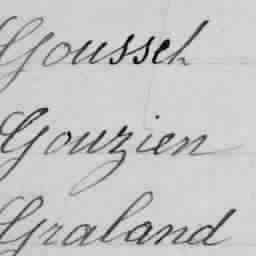 Gousset
Gouzien
Graland